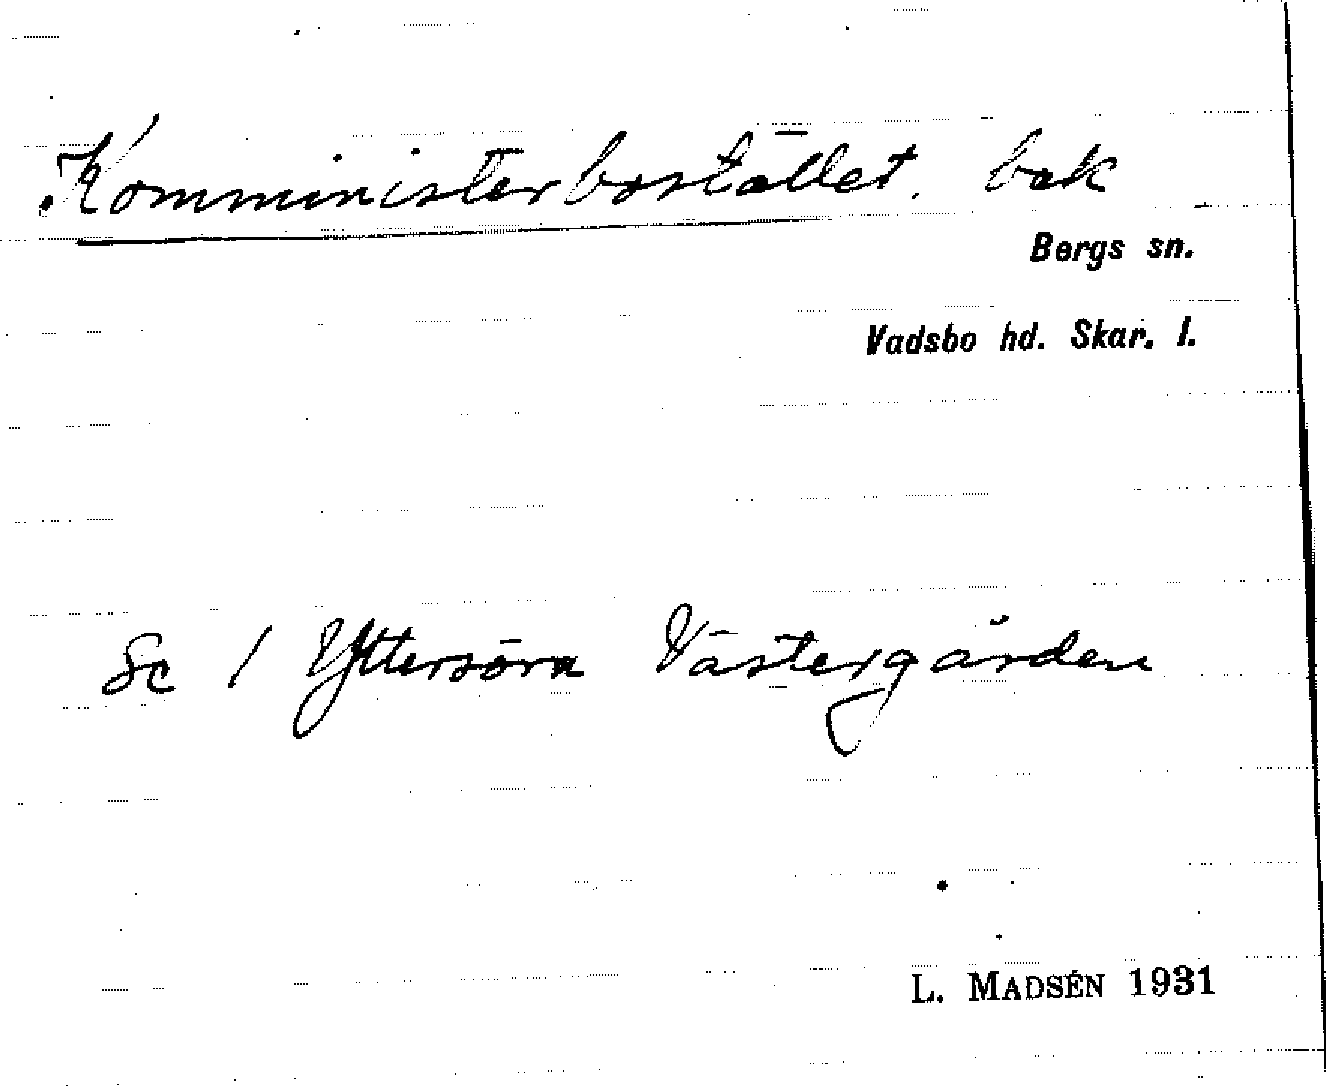 Komministerbostället. bok
Bergs sn.
Vadsbo hd. Skar. l.
Se / Yttersöra Västergården
L. MADSÉN 1931